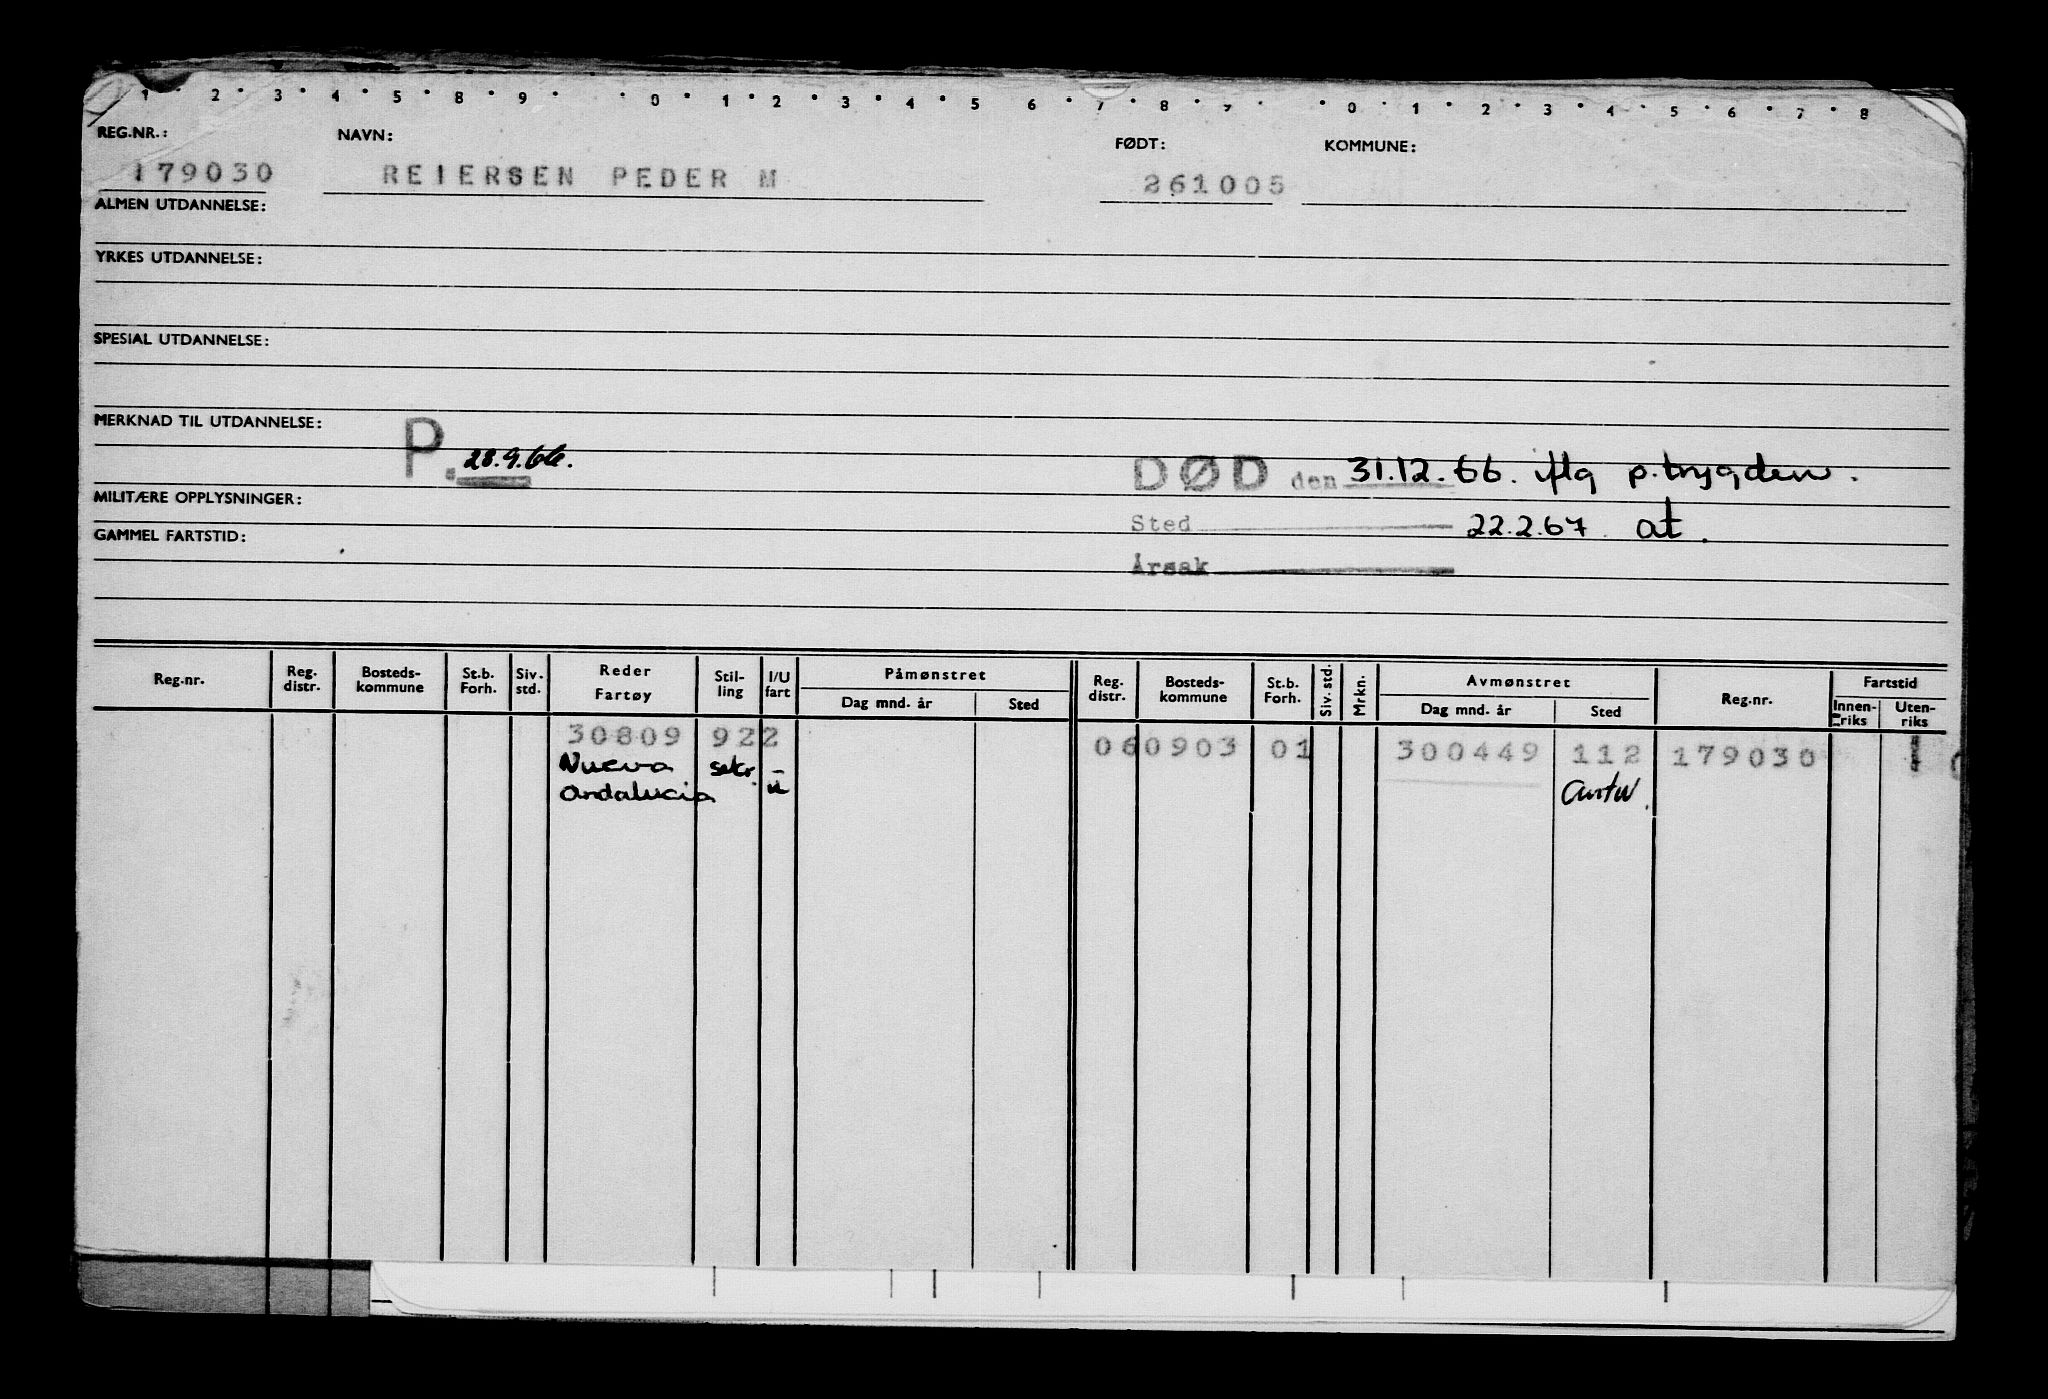 1 · 2 · 3 · 4 · 5 · 8 · 9 · · 0 · 1 · 2 · 3 · 4 · 5 6 · 7 · 8 · 9 · · 0 · 1 · 2 · 3 · 4 · 5 · 6 · 7 · 8
REG.NR.: NAVN: FØDT: KOMMUNE:
179030 REIERSEN PEDER M 261005
ALMEN UTDANNELSE:
YRKES UTDANNELSE:
SPESIAL UTDANNELSE:
MERKNAD TIL UTDANNELSE:
P. 28.9.66.
DØD den 31.12.66. iflg p.trygden.
MILITÆRE OPPLYSNINGER:
Sted 22.2.67. at.
GAMMEL FARTSTID:
Årsak
Reg.nr. Reg. distr. Bosteds-kommune St.b. Forh. Siv. std. Reder Fartøy Stil-ling I/U fart Påmønstret Dag mnd. år Sted Reg. distr. Bosteds-kommune St.b. Forh. Siv. std. Mrkn. Avmønstret Dag mnd. år Sted Reg.nr. Fartstid Innen-riks Uten-riks
30809 922 060903 01 300449 112 179030 1
Nueva sekr. u
Andalucia